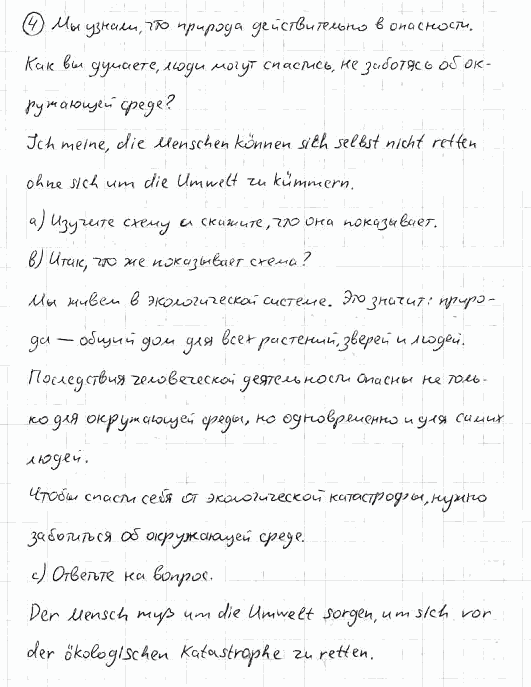 ④ Мы узнали, что природа действительно в опасности.
Как вы думаете, люди могут спастись, не заботясь об ок-
ружающей среде?
Ich meine, die Menschen können sich selbst nicht retten
ohne sich um die Umwelt zu kümmern.
a) Изучите схему и скажите, что она показывает.
b) Итак, что же показывает схема?
Мы живем в экологической системе. Это значит: приро-
да — общий дом для всех растений, зверей и людей.
Последствия человеческой деятельности опасны не толь-
ко для окружающей среды, но одновременно и для самих
людей.
Чтобы спасти себя от экологической катастрофы, нужно
заботиться об окружающей среде.
c) Ответьте на вопрос.
Der Mensch muß um die Umwelt sorgen, um sich vor
der ökologischen Katastrophe zu retten.